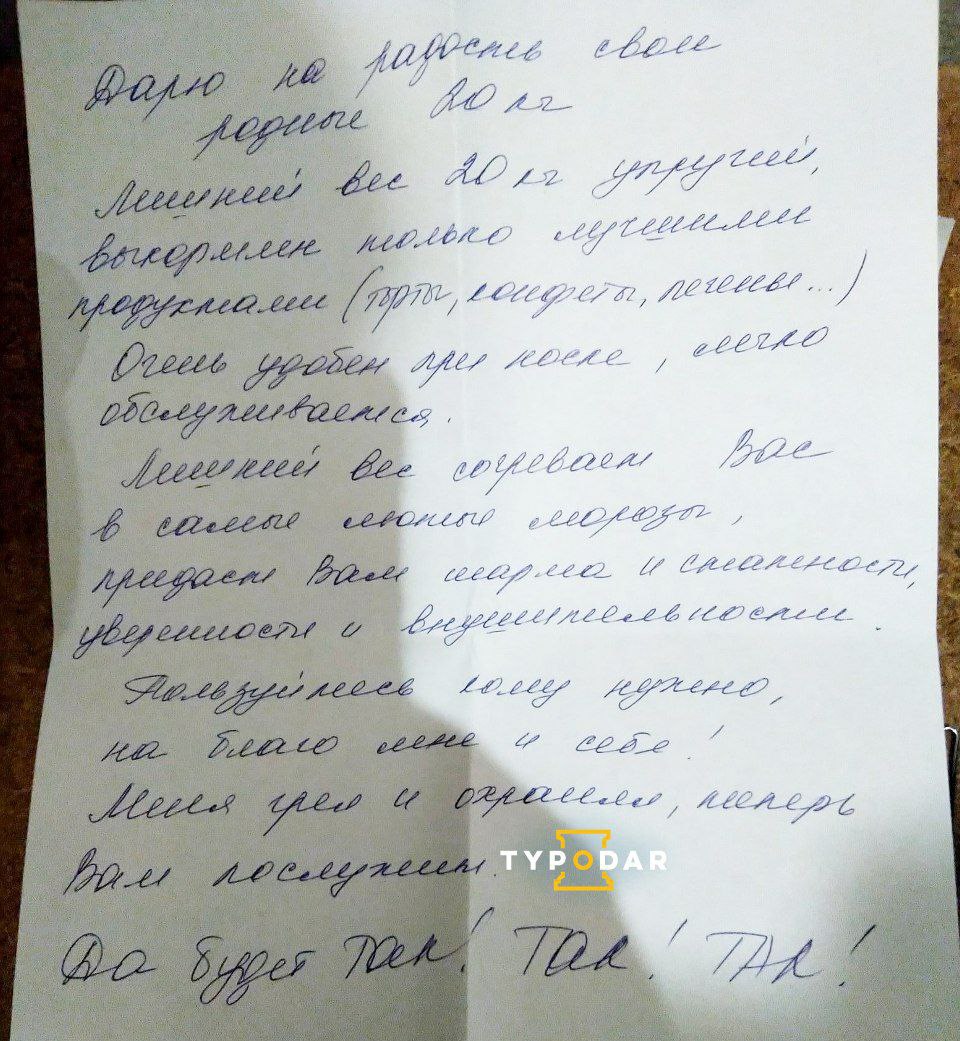 Дарю на радость свои
родные 20 кг
Лишний вес 20 кг упругий,
выкормлен только лучшими
продуктами (торты, конфеты, печенье...)
Очень удобен при носке, легко
обслуживается.
Лишний вес согревает Вас
в самые лютые морозы,
придаст Вам шарма и статности,
уверенности и внушительности.
Пользуйтесь кому нужно,
на благо мне и себе!
Меня грел и охранял, теперь
Вам послужит.
TYPODAR
Да будет Так! Так! ТАК!